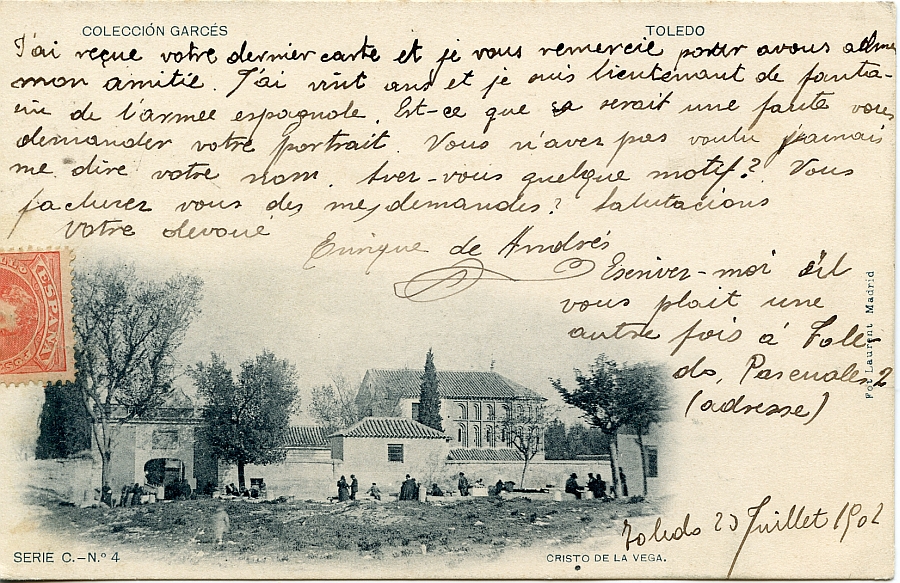 COLECCIÓN GARCÉS
TOLEDO
J'ai reçue votre dernier carte et je vous remercie pour avous
mon amitié. J'ai vint ans et je suis lieutenant de fantia-
rie de l'armee espagnole. Est-ce que sa serait une faute vous
demander votre portrait. Vous n'avez pas voulu jamais
me dire votre nom. Avez-vous quelque motif? Vous
vous des mes demandes? Salutacions
Votre devoué
Enrique de Andrés
Escrivez-moi s'il
vous plait une
autre fois á Tole-
do, Pascuales 2
(adresse)
ESPAÑA
Fot Laurent Madrid
Toledo 23 Juillet 1902
SERIE C.-N.º 4
CRISTO DE LA VEGA.